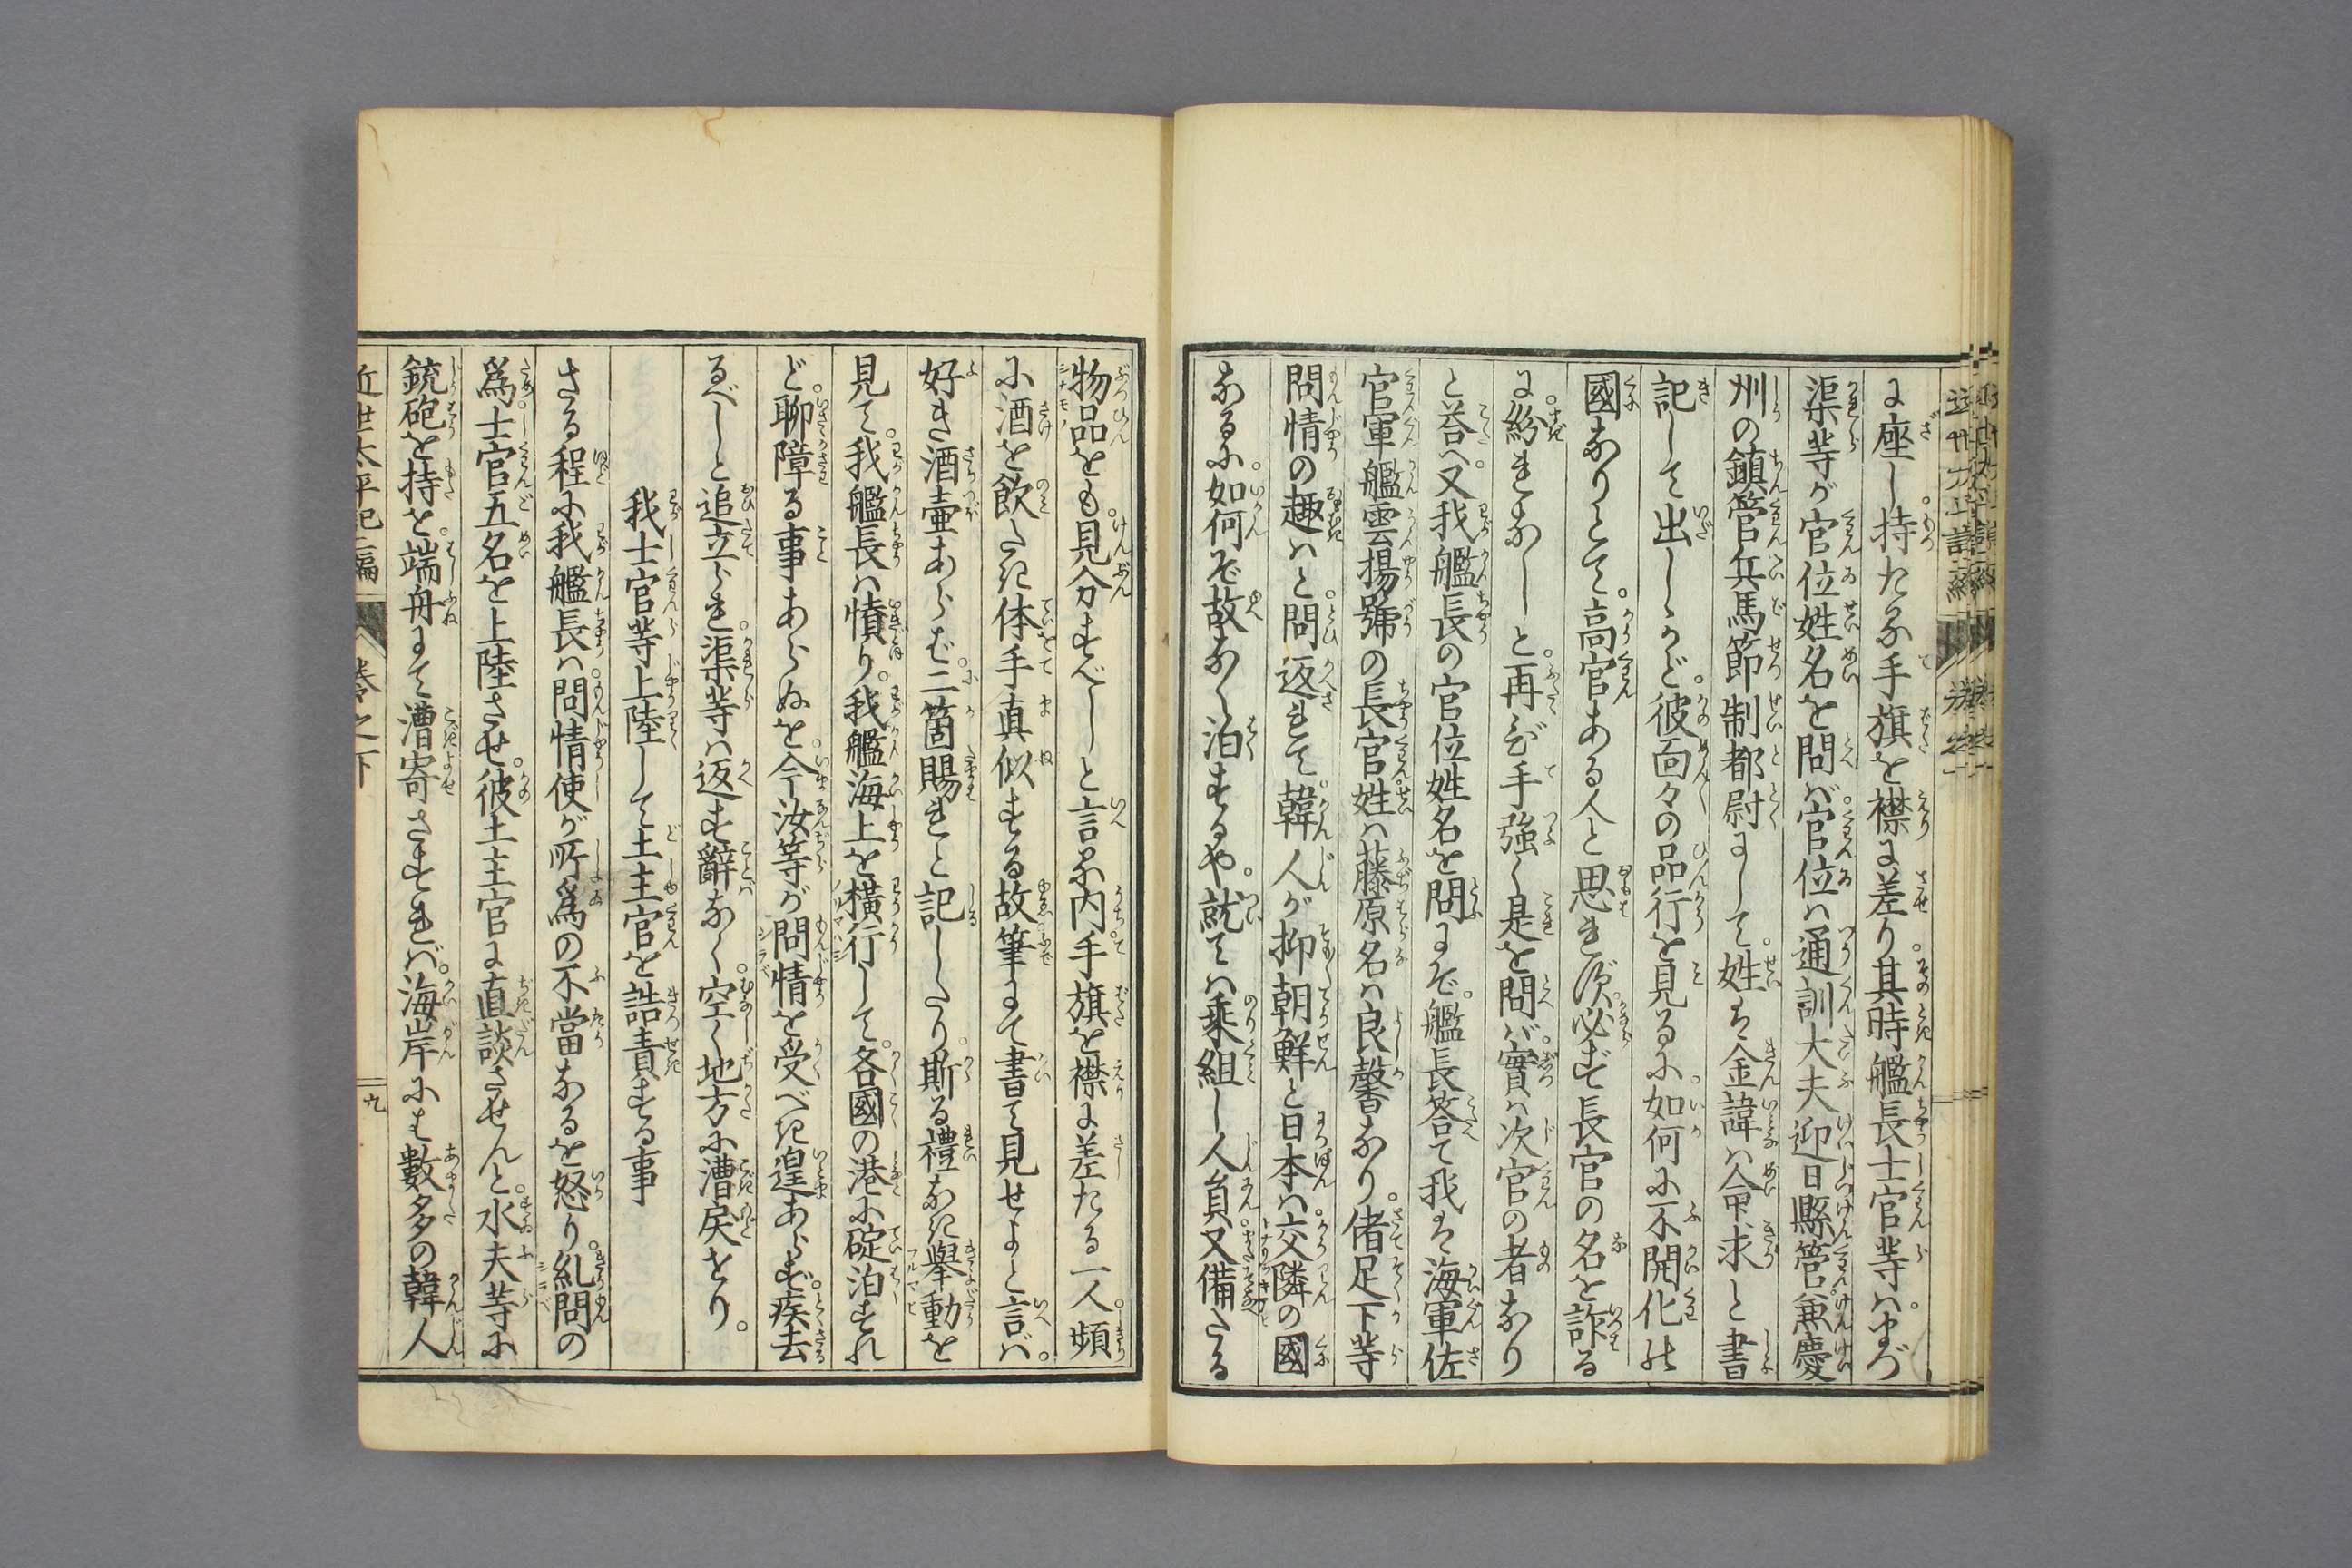 に座し。持たる手旗を襟に差せり。其時艦長士官等ハ。まづ
渠等が官位姓名を問バ。官位ハ通訓大夫迎日縣管。兼慶
州の鎮管兵馬節制都尉にして。姓ハ金諱ハ命求と書
記して出しゝかど。彼面々の品行を見るに。如何に不開化の
國なりとて。高官ある人と思れず。必ず長官の名を詐る
に。紛れなしと。再び手強く是を問バ。實ハ次官の者なり
と荅へ。又我艦長の官位姓名を問にぞ。艦長答て我ハ海軍佐
官軍艦雲揚號の長官。姓ハ藤原名ハ良馨なり。偖足下等
問情の趣ハと。問返されて。韓人が抑朝鮮と日本ハ。交隣の國
なるに。如何ぞ故なく泊するや。就てハ乗組し人員。又備たる
物品をも。見分すべしと言ふ内。手旗を襟に差たる一人。頻
に酒を飲たき体手真似する故。筆にて書て見せよと言バ。
好き酒壷あらば。二箇賜れと記したり。斯る禮なき擧動を
見て。我艦長ハ憤り。我艦海上を横行して。各國の港に碇泊すれ
ど。聊障る事あらぬを。今汝等が問情を受べき遑あらず。疾去
るべしと追立られ。渠等ハ返す辭なく。空く地方に漕戻せり。
我士官等上陸して土主官を詰責する事
さる程に我艦長ハ。問情使が所為の不當なるを怒り。糺問の
為。士官五名を上陸させ。彼土主官に直談させんと。水夫等に
銃砲を持せ。端舟にて漕寄さすれバ。海岸にハ數多の韓人
近世太平記二編
巻之下
九